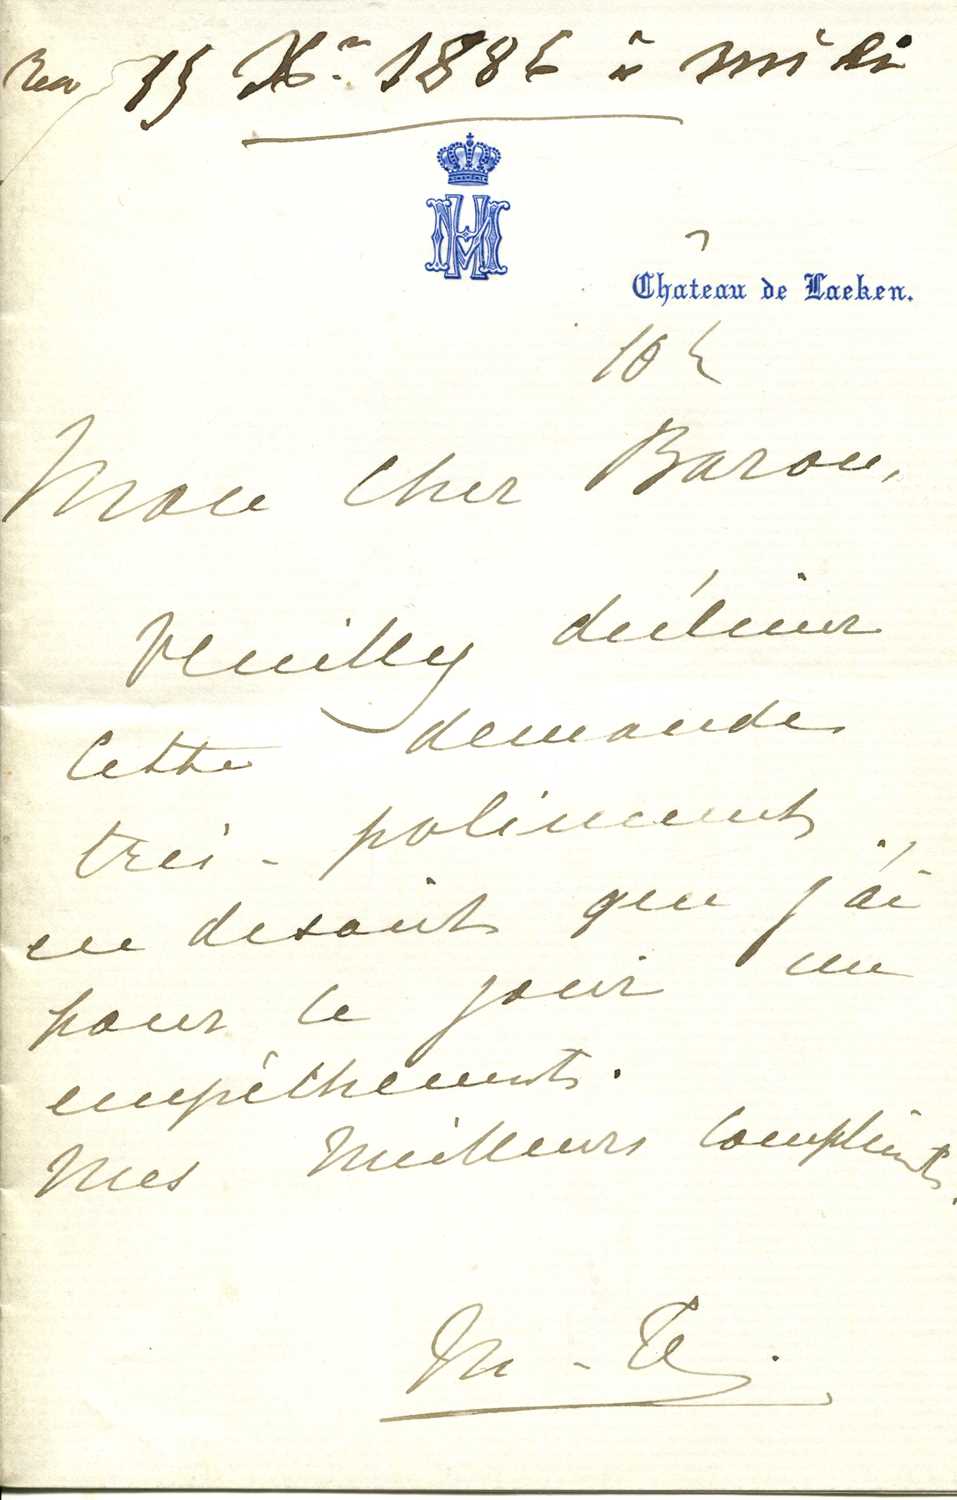 15 Xr 1886 à midi
MH
Château de Laeken.
10 h
Mon cher Baron,
Veuillez décliner
cette demande
très-poliment,
en disant que j'ai
pour ce jour un
empêchement.
Mes meilleurs compliments.
M-H.